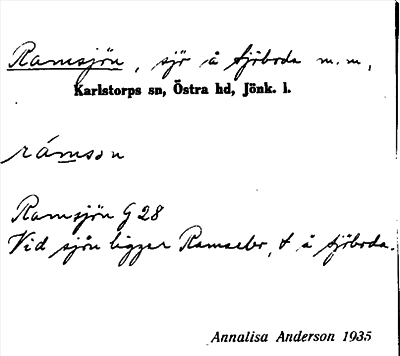 Ramsjön, sjö å Sjöboda m.m,
Karlstorps sn, Östra hd, Jönk. l.
rámson
Ramsjön G 28
Vid sjön ligger Ramsebo, t å Sjöboda.
Annalisa Anderson 1935